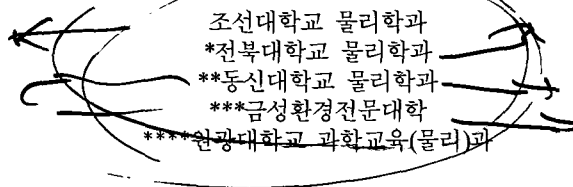 조선대학교 물리학과
*전북대학교 물리학과
**동신대학교 물리학과
***금성환경전문대학
****원광대학교 과학교육(물리)과